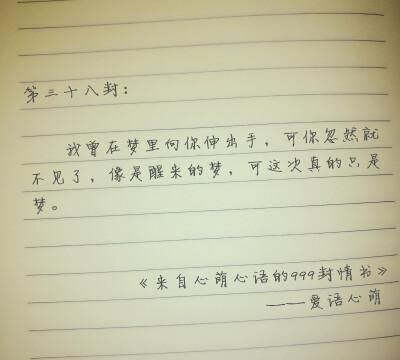 第三十八封：
我曾在梦里向你伸出手，可你忽然就
不见了，像是醒来的梦，可这次真的只是
梦。
《来自心萌心语的999封情书》
——爱语心萌